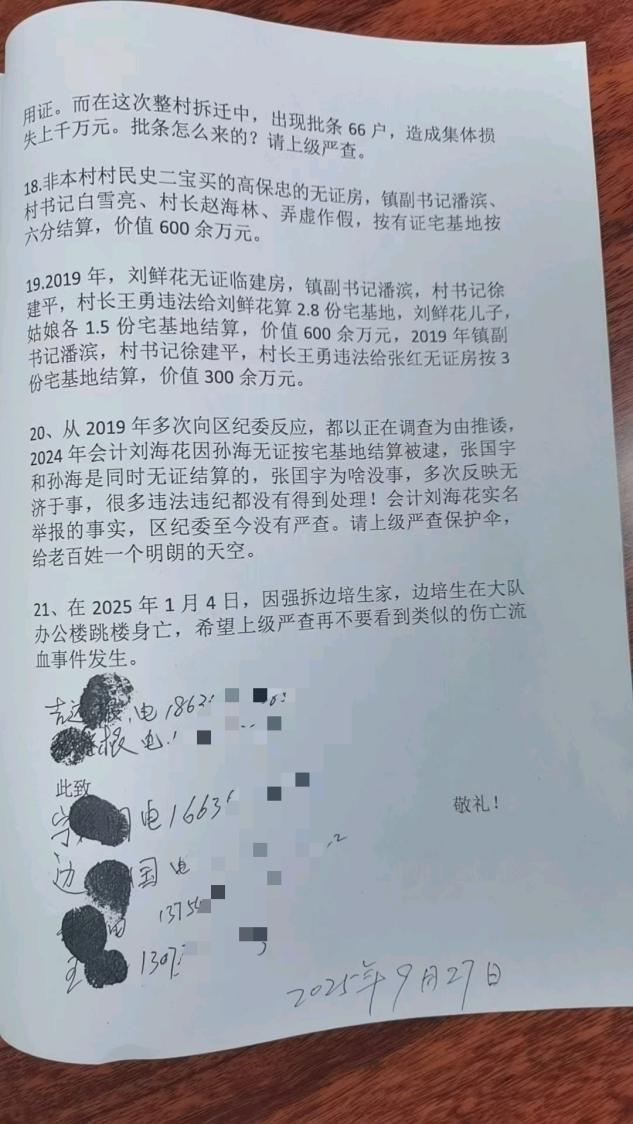 用证。而在这次整村拆迁中，出现批条 66 户，造成集体损
失上千万元。批条怎么来的？请上级严查。
18.非本村村民史二宝买的高保忠的无证房，镇副书记潘滨、
村书记白雪亮、村长赵海林、弄虚作假，按有证宅基地按
六分结算，价值 600 余万元。
19.2019 年，刘鲜花无证临建房，镇副书记潘滨，村书记徐
建平，村长王勇违法给刘鲜花算 2.8 份宅基地，刘鲜花儿子，
姑娘各 1.5 份宅基地结算，价值 600 余万元，2019 年镇副
书记潘滨，村书记徐建平，村长王勇违法给张红无证房按 3
份宅基地结算，价值 300 余万元。
20、从 2019 年多次向区纪委反应，都以正在调查为由推诿，
2024 年会计刘海花因孙海无证按宅基地结算被逮，张国宇
和孙海是同时无证结算的，张国宇为啥没事，多次反映无
济于事，很多违法违纪都没有得到处理！会计刘海花实名
举报的事实，区纪委至今没有严查。请上级严查保护伞，
给老百姓一个明朗的天空。
21、在 2025 年 1 月 4 日，因强拆边培生家，边培生在大队
办公楼跳楼身亡，希望上级严查再不要看到类似的伤亡流
血事件发生。
电 1862
根 电
此致
敬礼！
电 1663
边 国 电
1375
王 1307
2025年9月27日